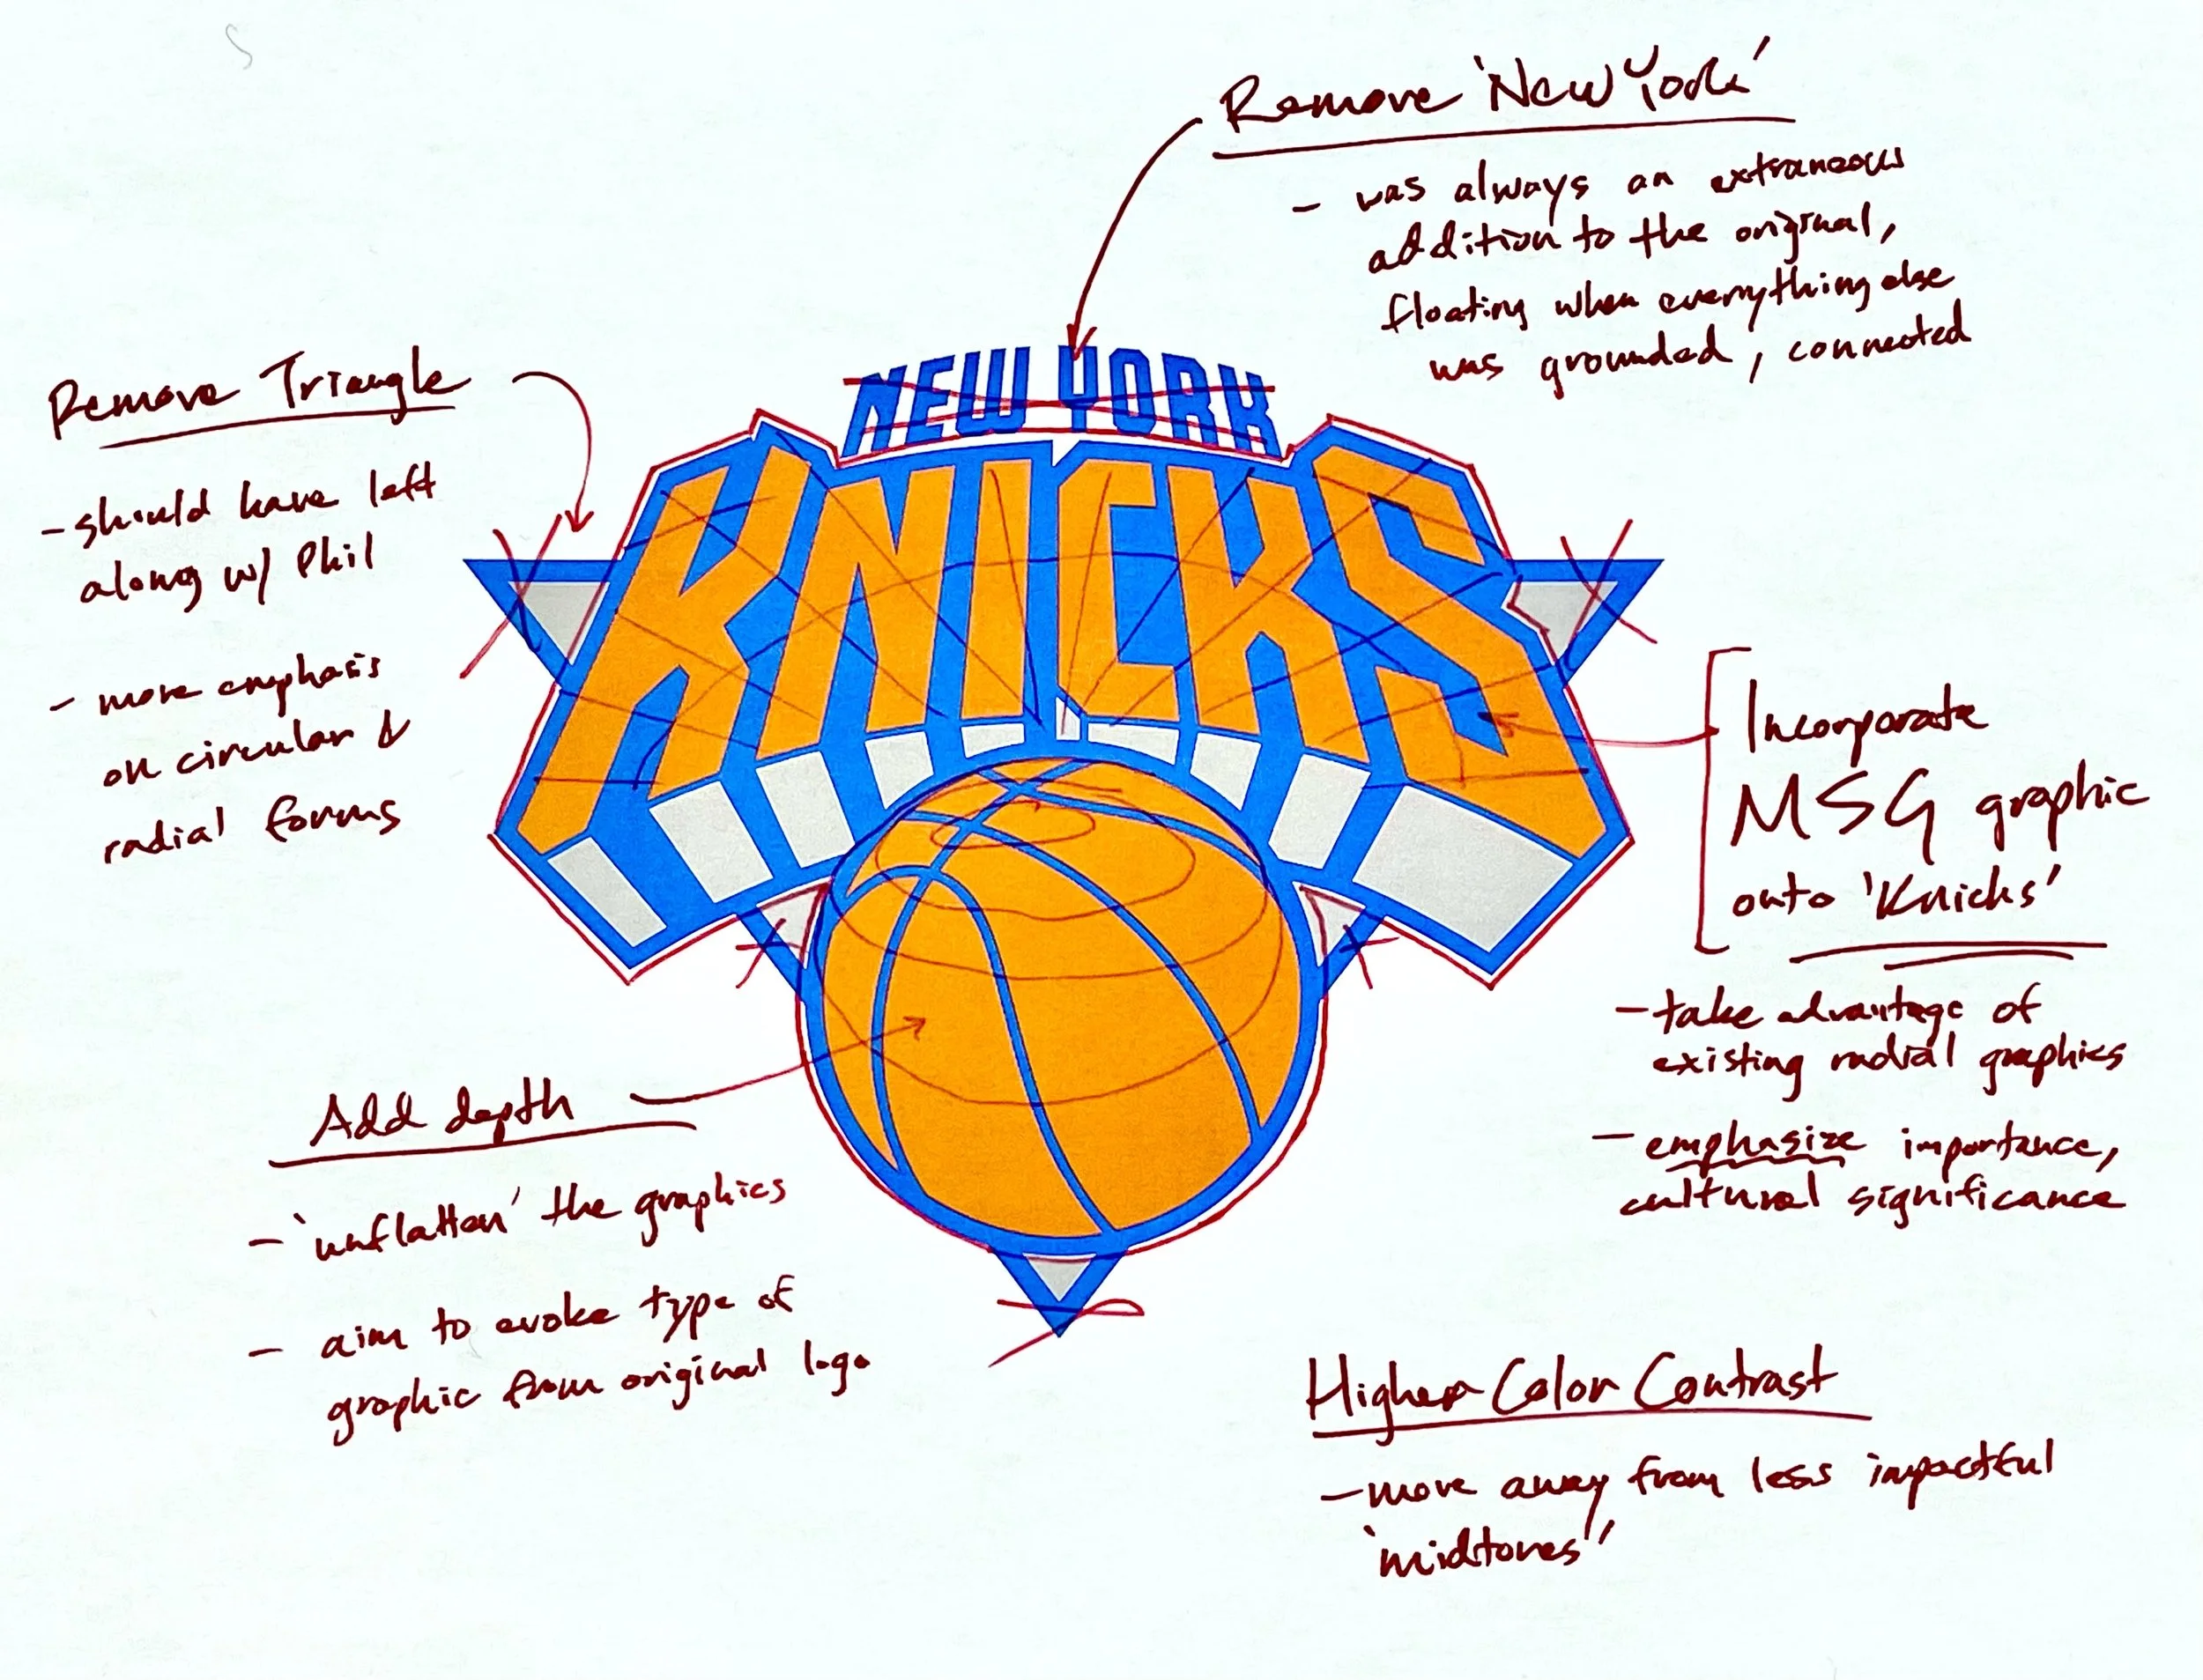 Remove 'New York'
- was always an extraneous
addition to the original,
floating when everything else
was grounded, connected
Remove Triangle
- should have left
along w/ Phil
- more emphasis
on circular &
radial forms
NEW YORK
KNICKS
Incorporate
MSG graphic
onto 'Knicks'
- take advantage of
existing radial graphics
- emphasize importance,
cultural significance
Add depth
- 'unflatten' the graphics
- aim to evoke type of
graphic from original logo
Higher Color Contrast
- move away from less impactful
'midtones'